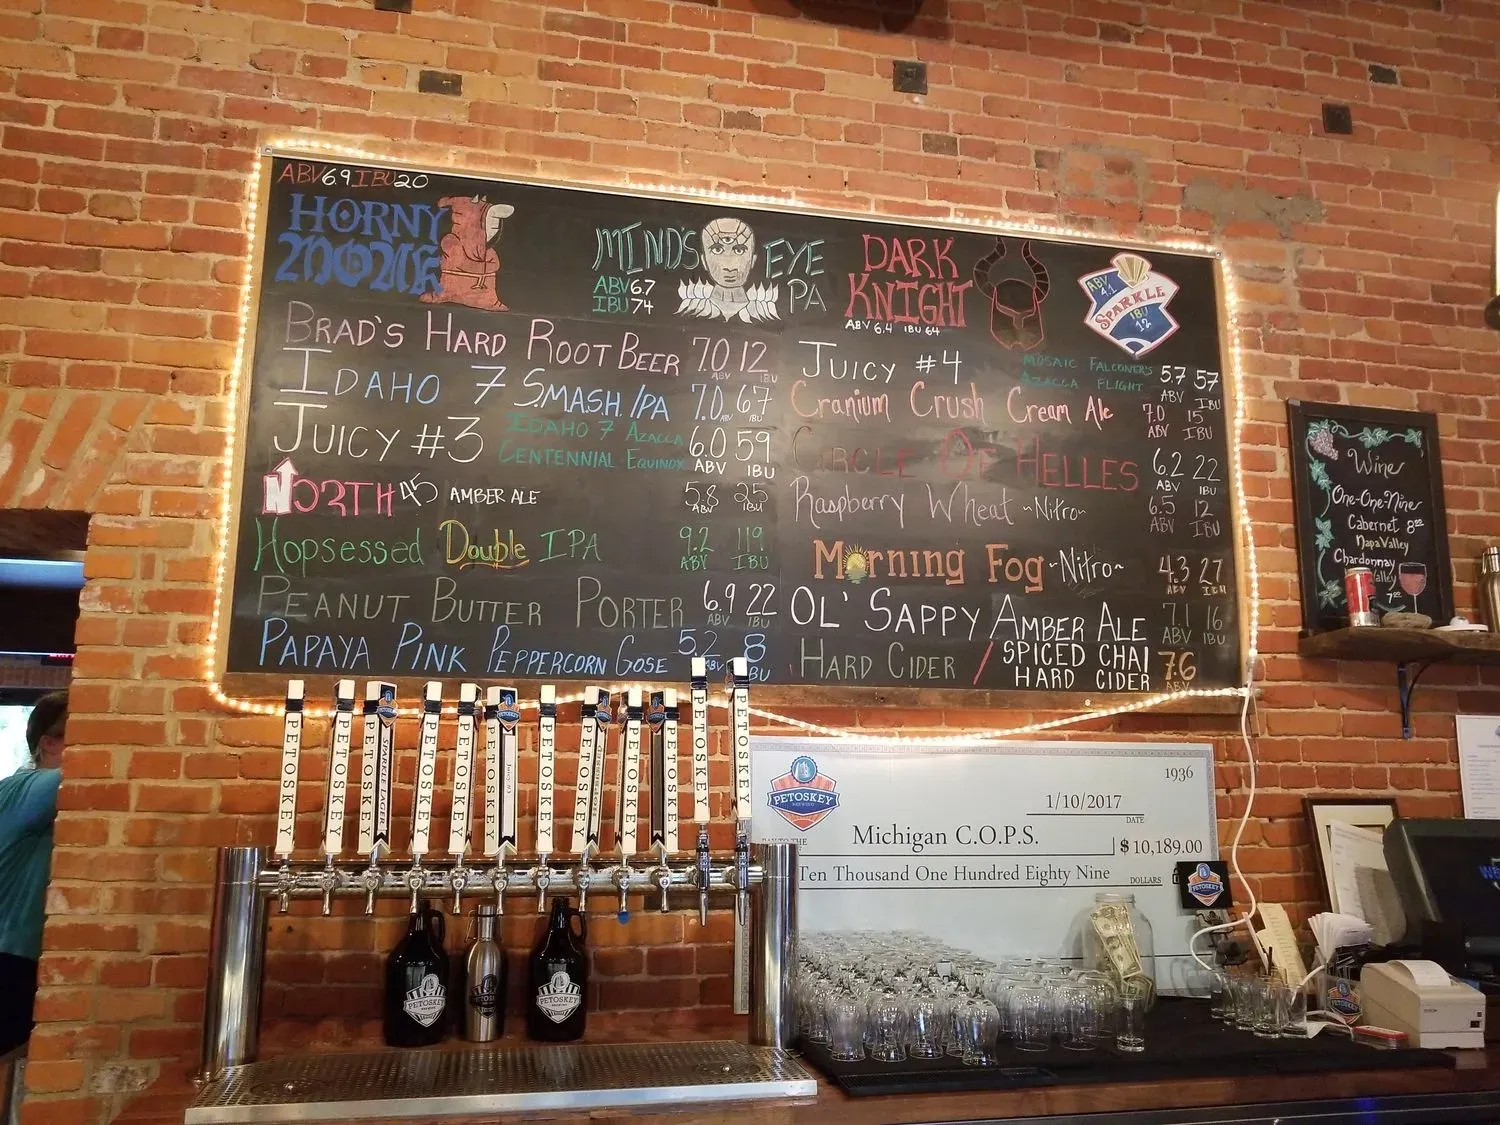 ABV 6.9 IBU 20
HORNY
MONK
MIND'S EYE
PA
ABV 6.7
IBU 74
DARK
KNIGHT
ABV 6.4 IBU 64
ABV
4.1
SPARKLE
IBU
12
BRAD'S HARD ROOT BEER 7.0 12
ABV IBU
IDAHO 7 S.M.A.S.H. IPA 7.0 67
ABV IBU
JUICY #3 IDAHO 7 AZACCA 6.0 59
CENTENNIAL EQUINOX ABV IBU
NORTH 45 AMBER ALE 5.8 25
ABV IBU
Hopsessed Double IPA 9.2 119
ABV IBU
PEANUT BUTTER PORTER 6.9 22
ABV IBU
PAPAYA PINK PEPPERCORN GOSE 5.2 8
ABV IBU
JUICY #4 MOSAIC FALCONER'S 5.7 57
AZACCA FLIGHT ABV IBU
Cranium Crush Cream Ale 7.0 15
ABV IBU
CIRCLE OF HELLES 6.2 22
ABV IBU
Raspberry Wheat ~Nitro~ 6.5 12
ABV IBU
Morning Fog ~Nitro~ 4.3 27
ABV IBU
OL' SAPPY AMBER ALE 7.1 16
ABV IBU
HARD CIDER / SPICED CHAI 7.6
HARD CIDER ABV
Wine
One-One-Nine
Cabernet 8.00
Napa Valley
Chardonnay
Valley
7.00
PETOSKEY
PETOSKEY
SPARKLE LAGER
PETOSKEY
PETOSKEY
PETOSKEY
PETOSKEY
PETOSKEY
PETOSKEY
PETOSKEY
PETOSKEY
PETOSKEY
BREWING
1936
1/10/2017
DATE
Michigan C.O.P.S. $ 10,189.00
Ten Thousand One Hundred Eighty Nine DOLLARS
PETOSKEY
PETOSKEY
PETOSKEY
PETOSKEY